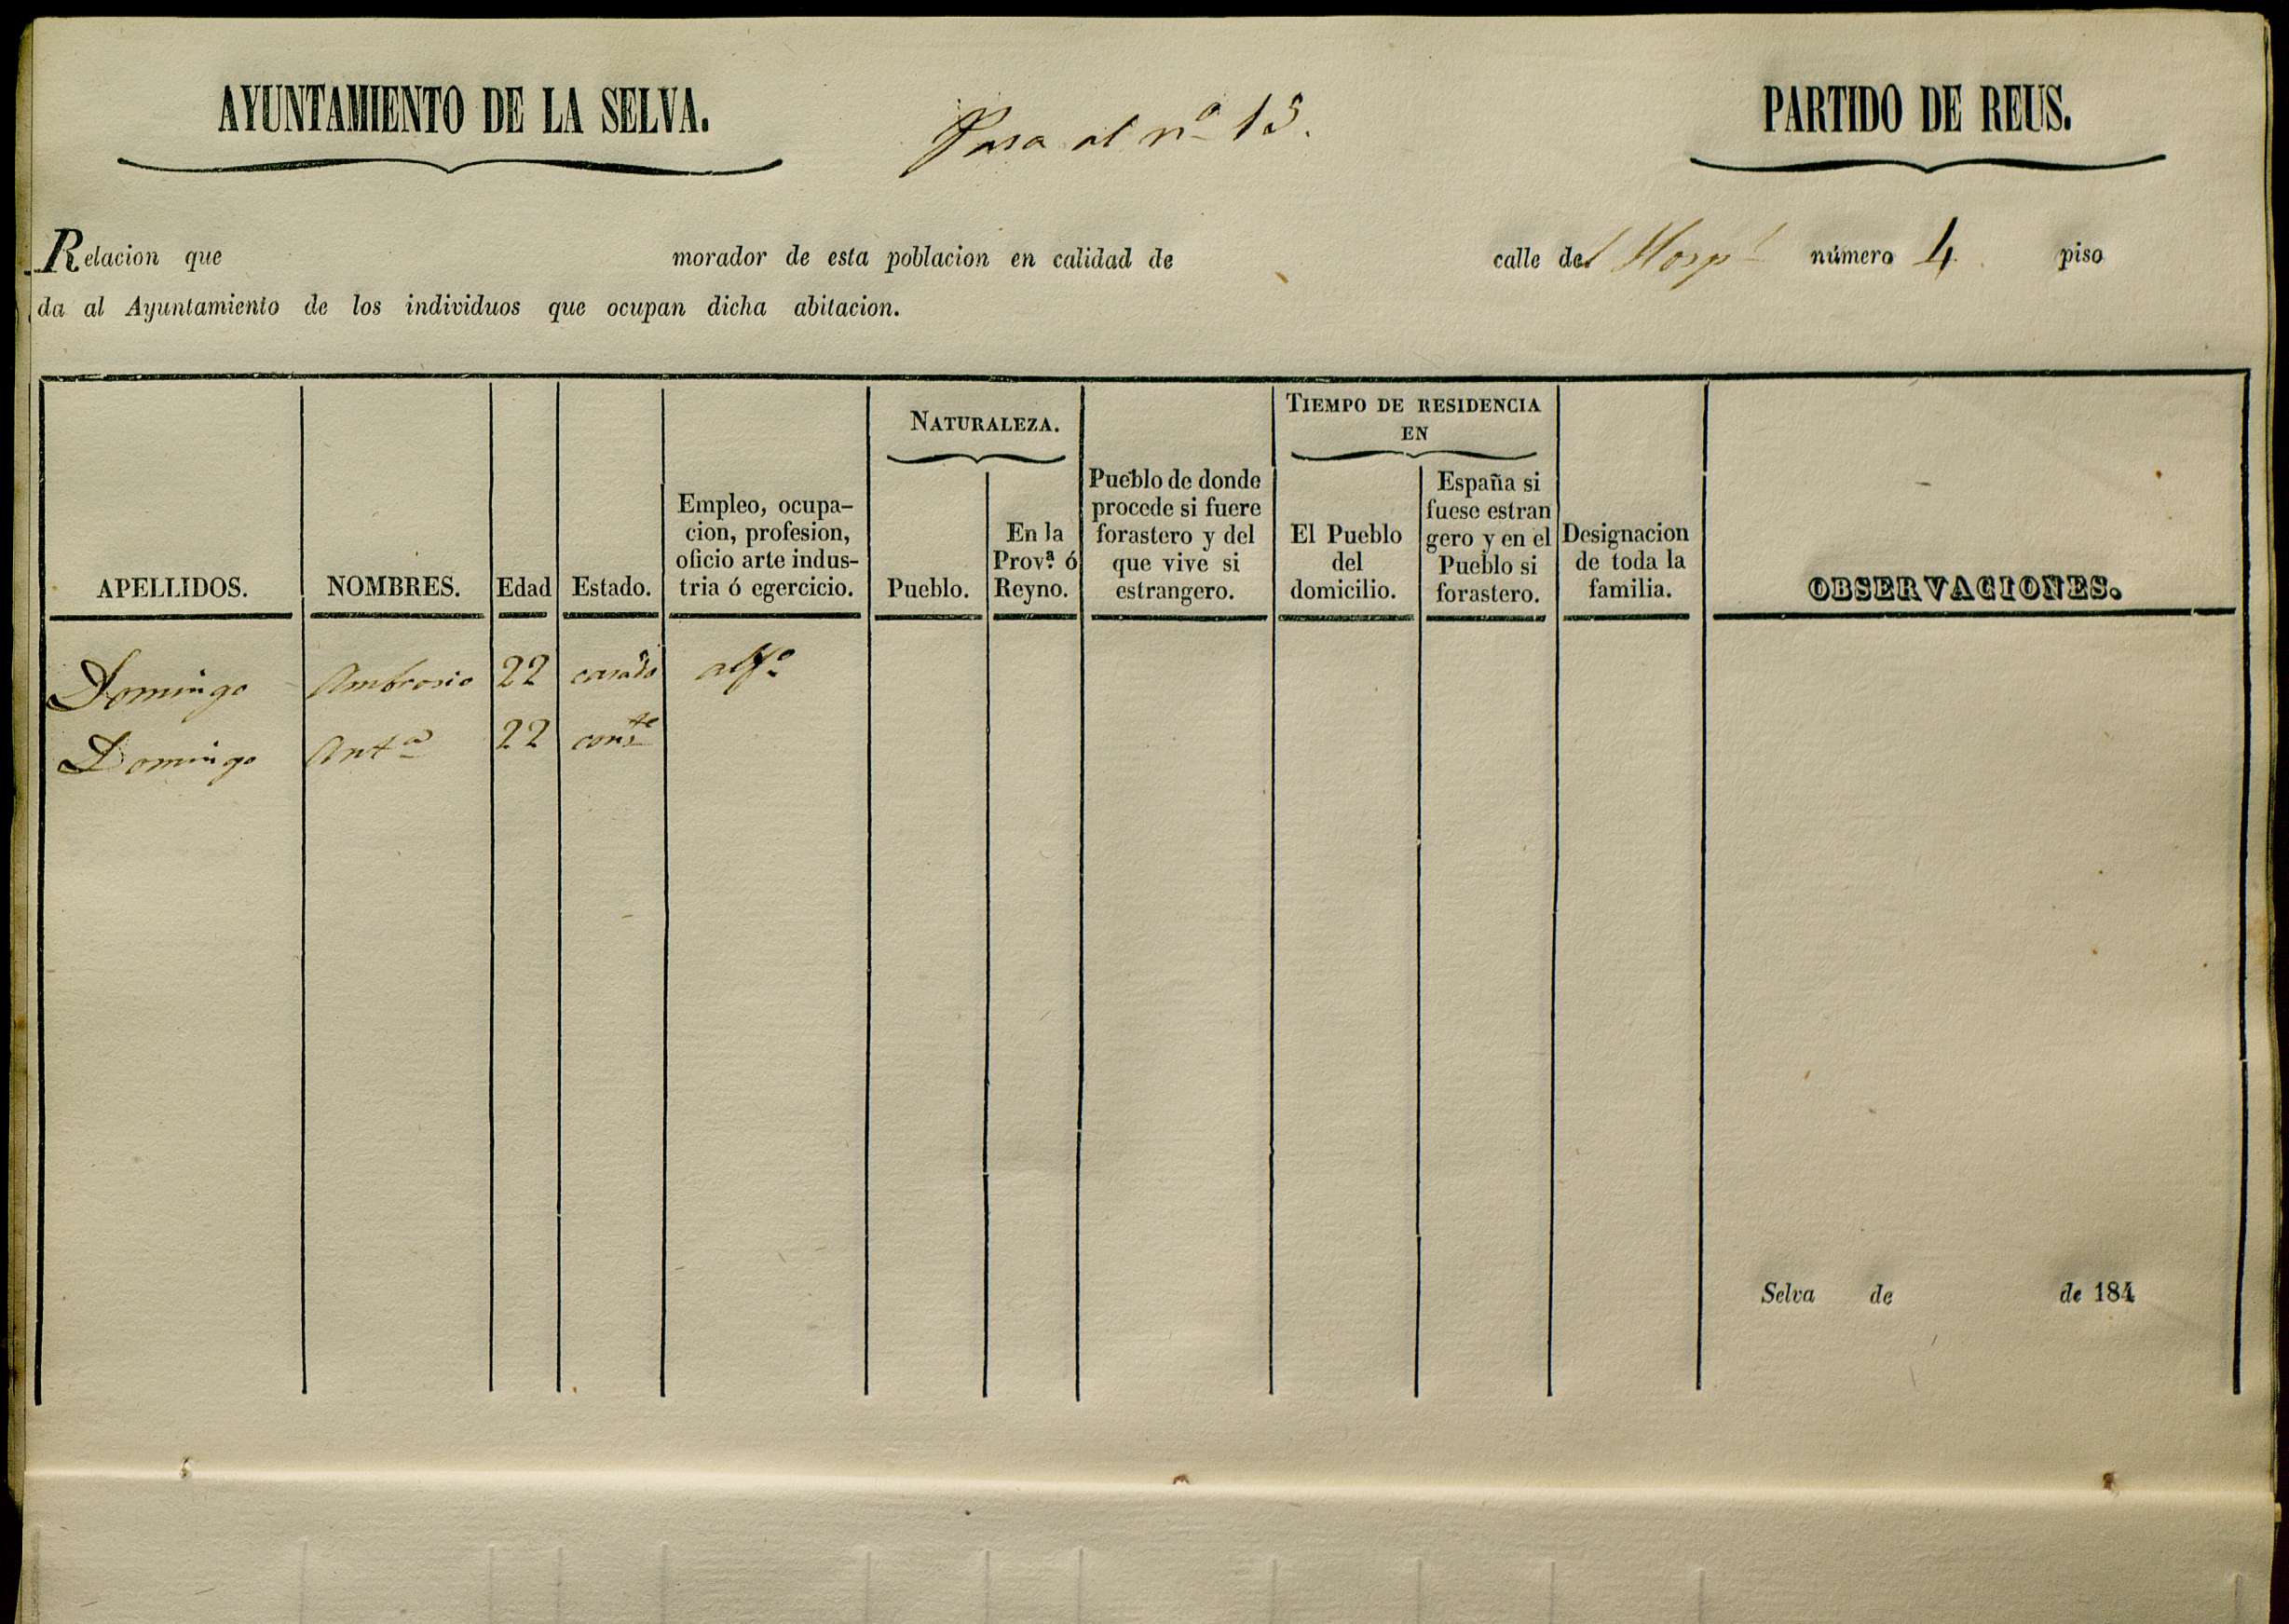 AYUNTAMIENTO DE LA SELVA.
Pasa al nº 13.
PARTIDO DE REUS.
Relacion que morador de esta poblacion en calidad de calle del Hospl número 4 piso
da al Ayuntamiento de los individuos que ocupan dicha abitacion.
APELLIDOS.
NOMBRES.
Edad
Estado.
Empleo, ocupa-
cion, profesion,
oficio arte indus-
tria ó egercicio.
NATURALEZA.
Pueblo.
En la
Provª ó
Reyno.
Pueblo de donde
procede si fuere
forastero y del
que vive si
estrangero.
TIEMPO DE RESIDENCIA
EN
El Pueblo
del
domicilio.
España si
fuese estran
gero y en el
Pueblo si
forastero.
Designacion
de toda la
familia.
OBSERVACIONES.
Domingo Ambrosio 22 casado alfº
Domingo Antª 22 conste
Selva de de 184